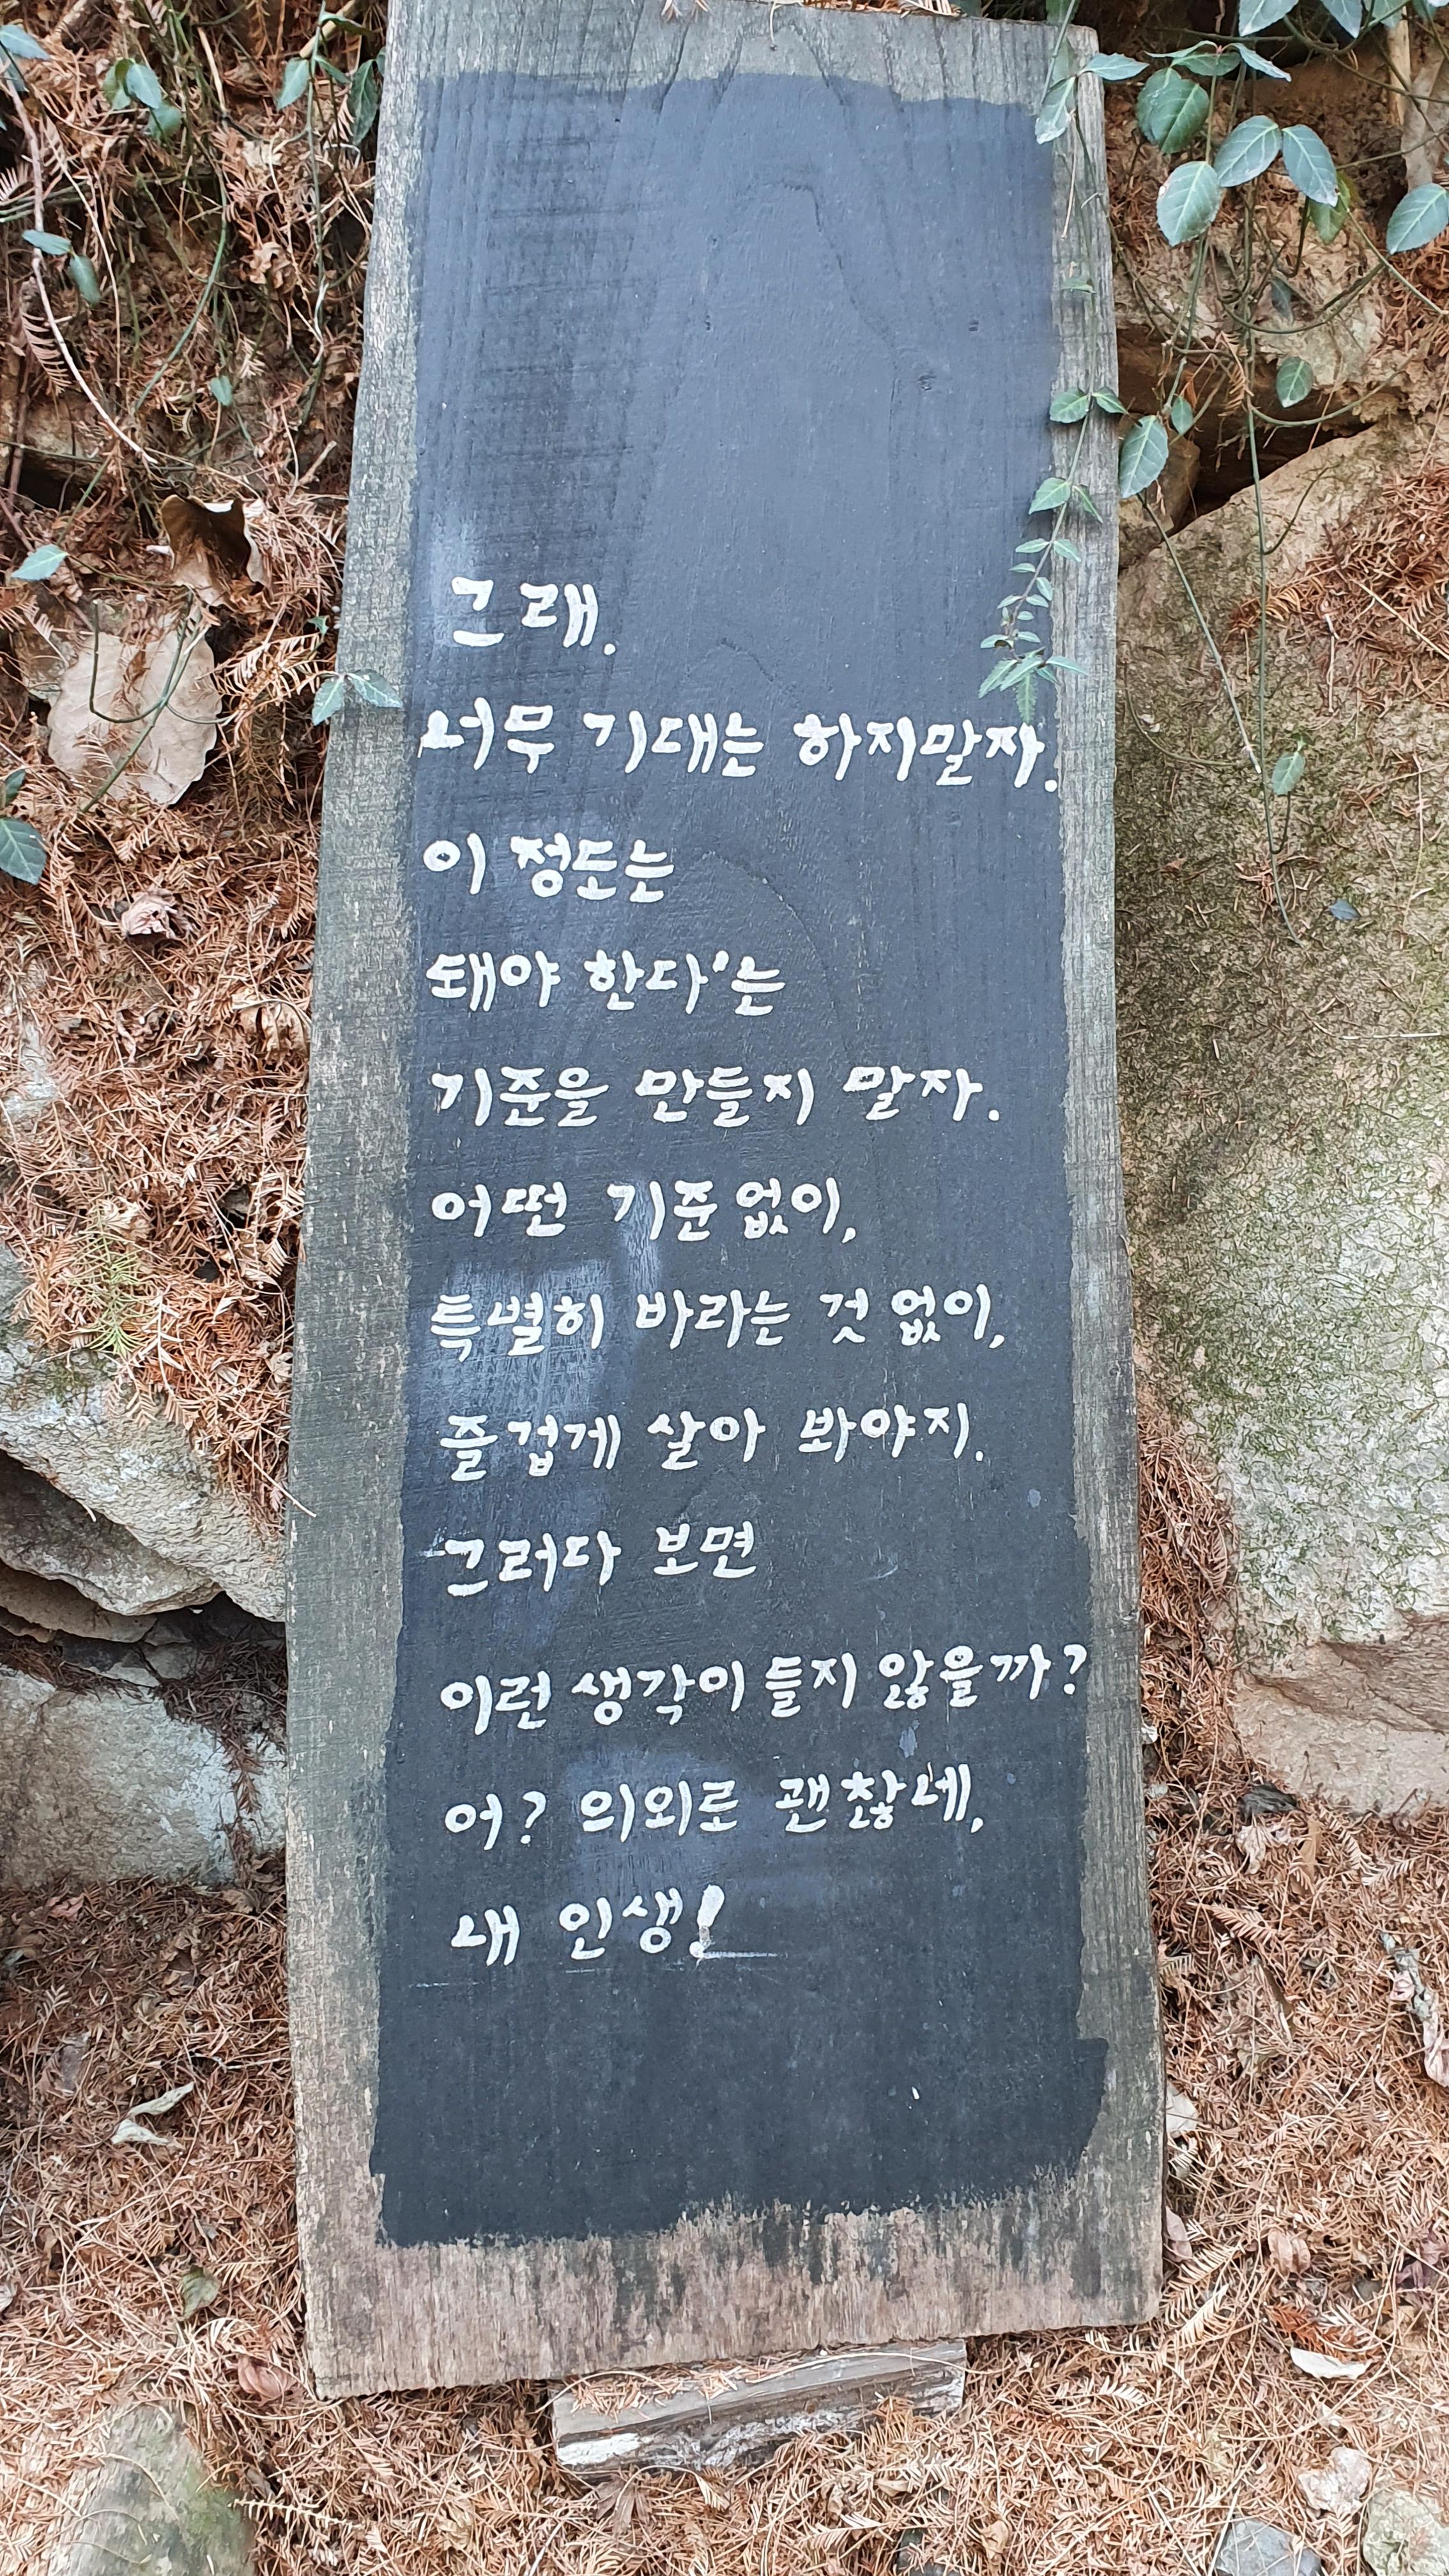 그래.
너무 기대는 하지말자.
이 정도는
돼야 한다'는
기준을 만들지 말자.
어떤 기준 없이,
특별히 바라는 것 없이,
즐겁게 살아 봐야지.
그러다 보면
이런 생각이 들지 않을까?
어? 의외로 괜찮네,
내 인생!